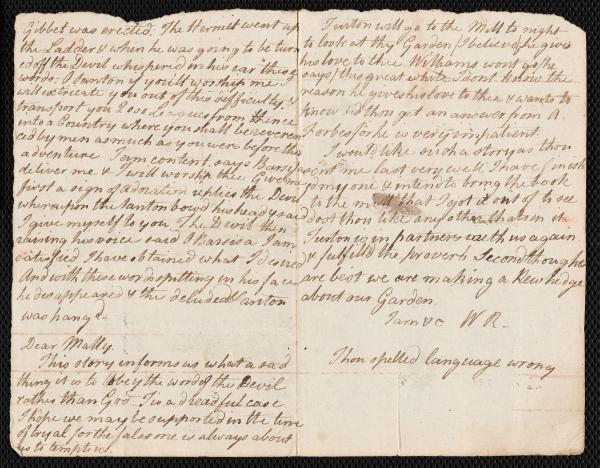 Gibbet was erected. The Hermit went up
the Ladder & when he was going to be turn
ed off the Devil whispered in his ear these
words. O santon if you'll worship me I
will extricate you out of this difficulty &
transport you 2000 Leagues from thence
into a Country where you shall be reveren
ced by men as much as you were before this
adventure I am content says Barsisa
deliver me & I will worship thee Give me
first a sign of adoration replies the Devil
whereupon the Santon bow'd his head & said
I give myself to you The Devil then
raising his voice said O Barsisa I am
satisfied I have obtained what I desired
And with these words spitting in his face
he disappeared & the deluded Santon
was hang'd.
Dear Mally.
This story informs us what a said
thing it is to obey the word of the Devil
rather than God Tis a dreadful case
I hope we may be supported in the time
of tryal for the false one is always about
us to tempt us.
Turton will go to the Mill to night
to look at thy Garden I believe he gives
his love to thee Williams wont go he
says this great white I dont know the
reason he gives his love to thee & wants to
know did thou get an answer from A.
Forbes for he is very impatient.
I would like such a story as thou
sent me last very well I have finish
ed my one & intend to bring the book
to the mill that I got it out of to see
dost thou like any other that's in it
Turton is in partners with us again
& fulfill'd the proverb Second thoughts
are best we are making a New hedge
about our Garden.
I am &c W R.
Thou spelled language wrong